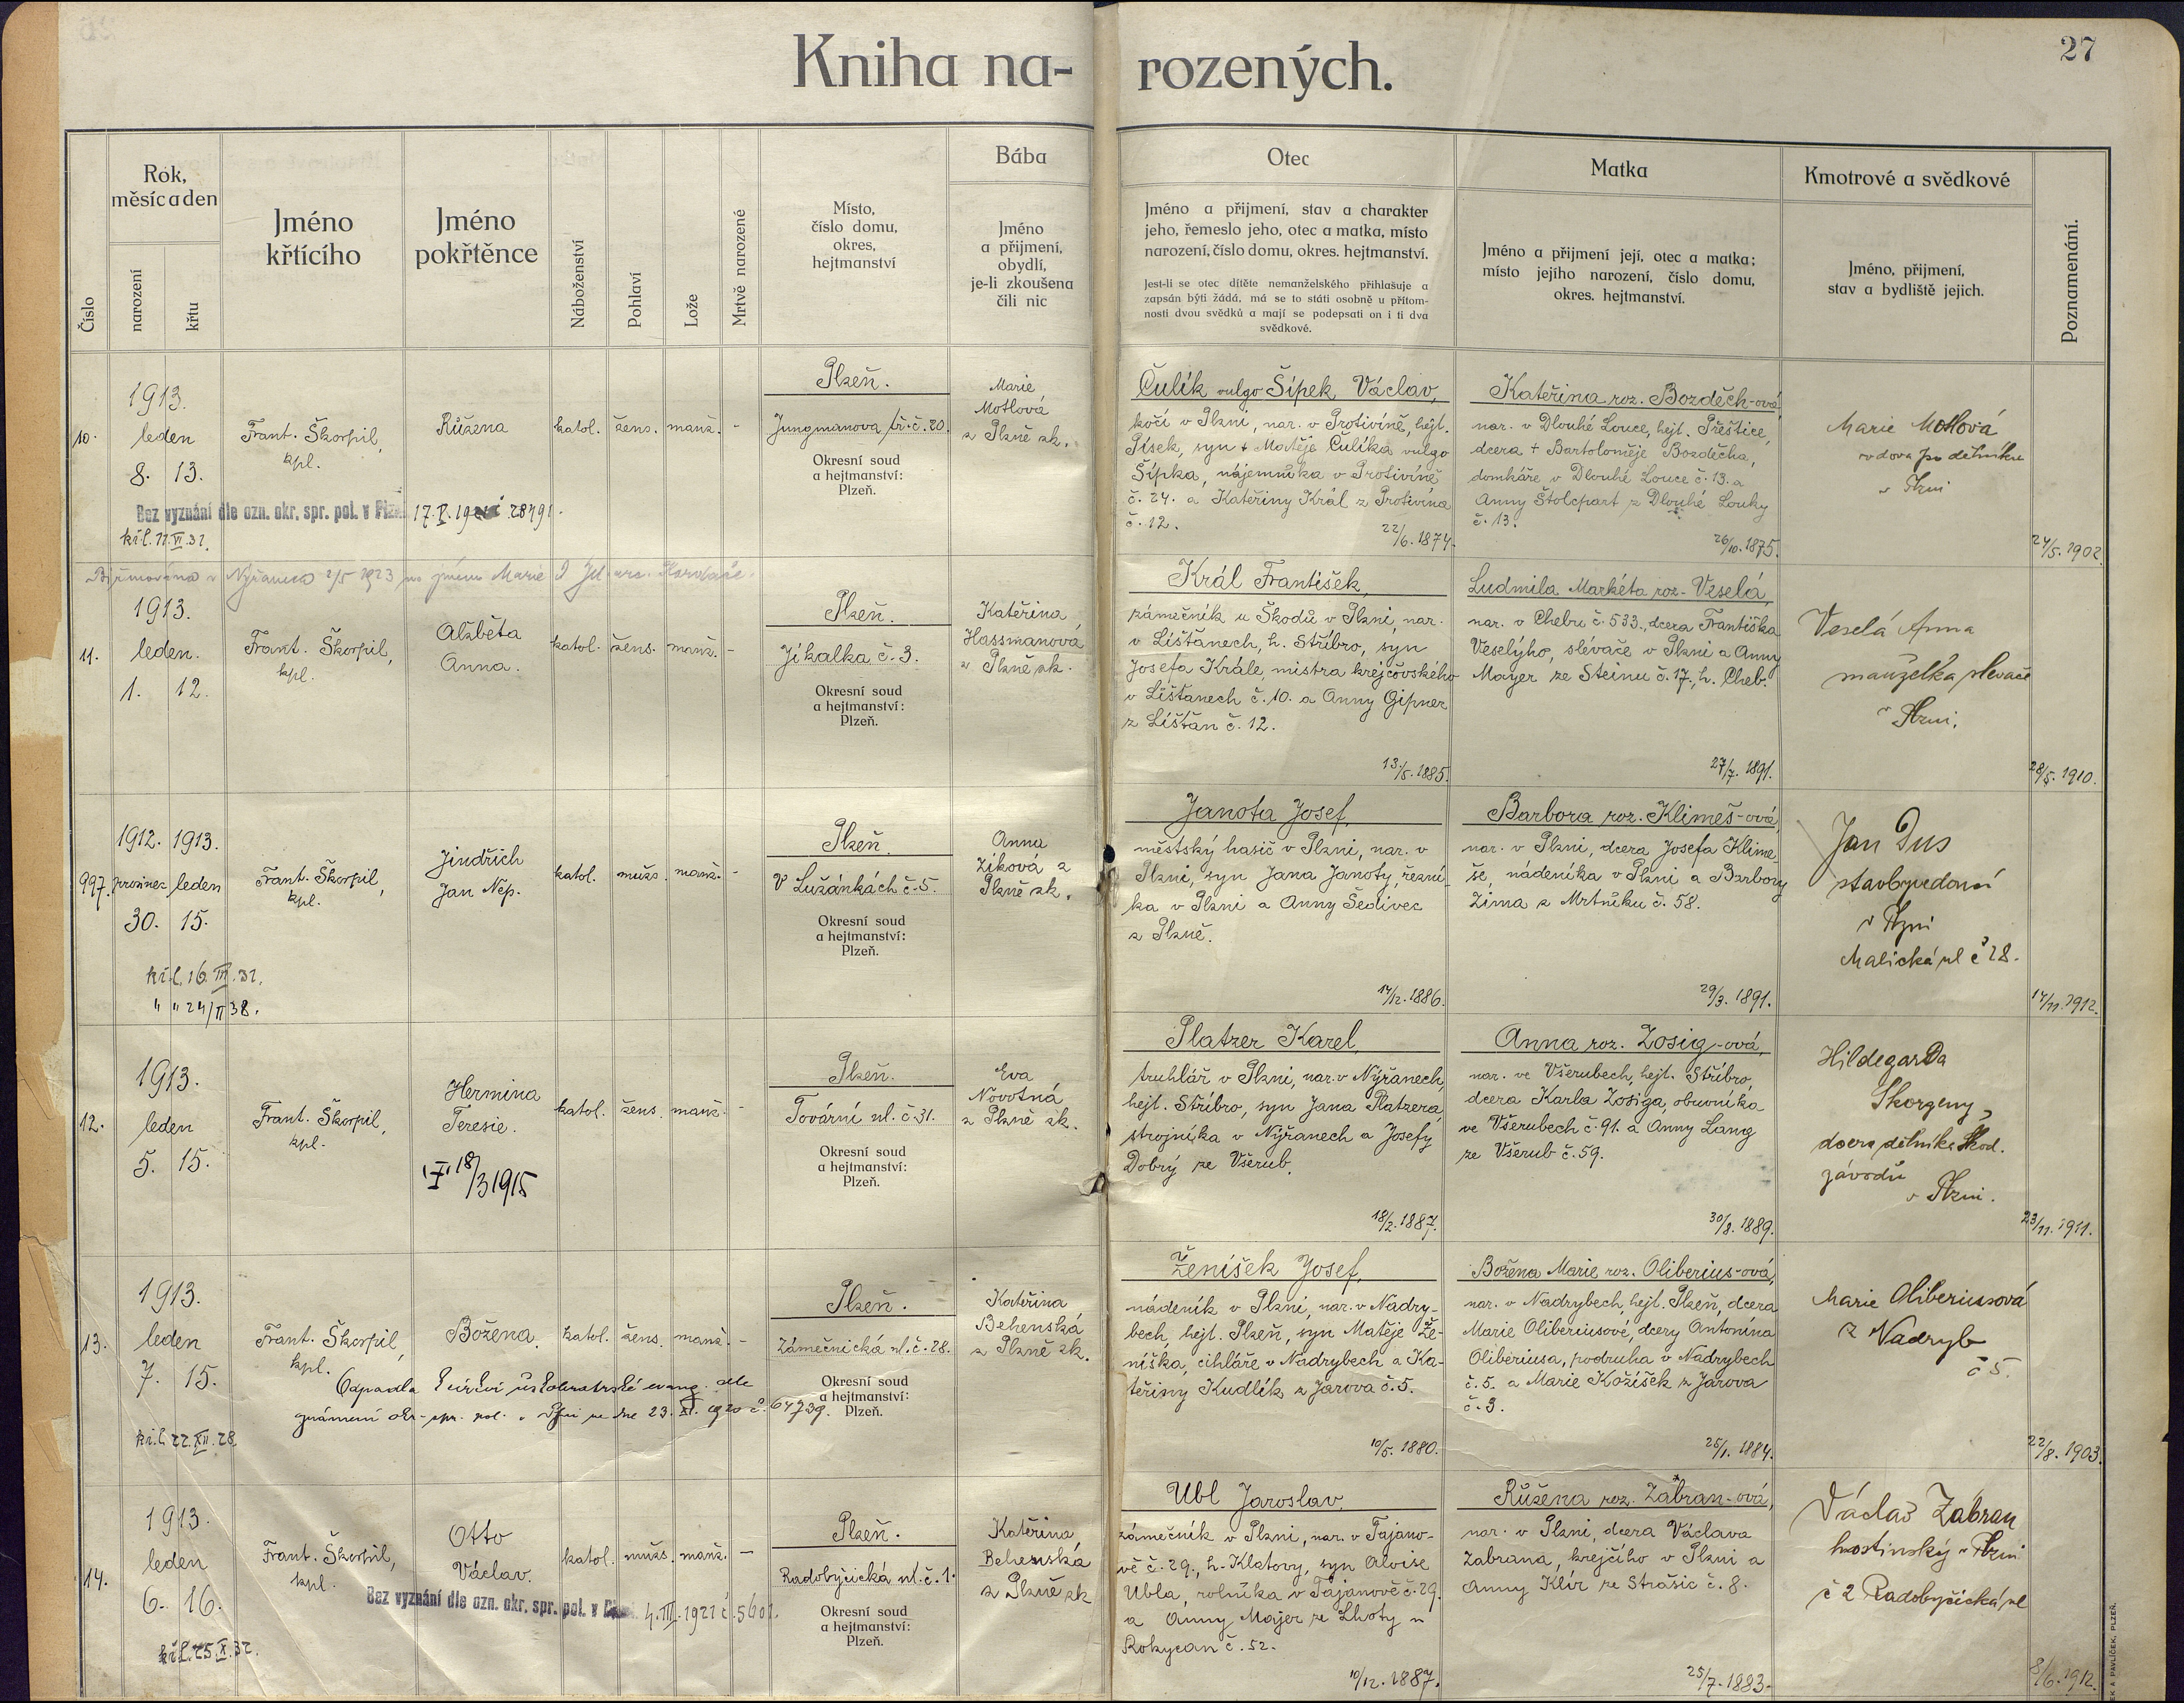 Kniha na- rozených.
27
Číslo
Rok,
měsíc a den
narození
křtu
Jméno
křtícího
Jméno
pokřtěnce
Náboženství
Pohlaví
Lože
Mrtvě narozené
Místo,
číslo domu,
okres,
hejtmanství
Bába
Jméno
a přijmení,
obydlí,
je-li zkoušena
čili nic
Otec
Jméno a přijmení, stav a charakter
jeho, řemeslo jeho, otec a matka, místo
narození, číslo domu, okres. hejtmanství.
Jest-li se otec dítěte nemanželského přihlašuje a
zapsán býti žádá, má se to státi osobně u přítom-
nosti dvou svědků a mají se podepsati on i ti dva
svědkové.
Matka
Jméno a přijmení její, otec a matka;
místo jejího narození, číslo domu,
okres. hejtmanství.
Kmotrové a svědkové
Jméno, přijmení,
stav a bydliště jejich.
Poznamenání.
10.
1913.
leden
8. 13.
Frant. Škorpil,
kpl.
Růžena
katol.
žens.
manž.
-
Plzeň.
Jungmanova tř. č. 20.
Okresní soud
a hejtmanství:
Plzeň.
Marie
Motlová
z Plzně zk.
Čulík vulgo Šípek Václav,
kočí v Plzni, nar. v Protivíně, hejt.
Písek, syn + Matěje Čulíka vulgo
Šípka, nájemníka v Protivíně
č. 24. a Kateřiny Král z Protivína
č. 12.
22/6. 1874.
Kateřina roz. Bozděch-ová,
nar. v Dlouhé Louce, hejt. Přeštice,
dcera + Bartoloměje Bozděcha,
domkáře v Dlouhé Louce č. 13. a
Anny Štolcpart z Dlouhé Louky
č. 13.
26/10. 1875.
Marie Motlová
vdova po dělníku
v Plzni
24/5. 1902.
Bez vyznání dle ozn. okr. spr. pol. v Plzni 17. V. 1921 28491.
kř. l. 17. VI. 32.
Biřmována v Nýřanech 2/5 1923 na jméno Marie
11.
1913.
leden.
1. 12.
Frant. Škorpil,
kpl.
Alžběta
Anna.
katol.
žens.
manž.
-
Plzeň.
Jikalka č. 3.
Okresní soud
a hejtmanství:
Plzeň.
Kateřina
Hassmanová
z Plzně zk.
Král František,
zámečník u Škodů v Plzni, nar.
v Líšťanech, h. Stříbro, syn
Josefa Krále, mistra krejčovského
v Líšťanech č. 10. a Anny Gipner
z Líšťan č. 12.
13./5. 1885.
Ludmila Markéta roz. Veselá,
nar. v Chebu č. 533., dcera Františka
Veselýho, slévače v Plzni a Anny
Mayer ze Steinu č. 17., h. Cheb.
27/7. 1891.
Veselá Anna
manželka slevače
v Plzni.
28/5. 1910.
997.
1912. 1913.
prosinec leden
30. 15.
Frant. Škorpil,
kpl.
Jindřich
Jan Nep.
katol.
mužs.
manž.
-
Plzeň.
V Lužánkách č. 5.
Okresní soud
a hejtmanství:
Plzeň.
Anna
Ziková z
Plzně zk.
Janota Josef,
městský hasič v Plzni, nar. v
Plzni, syn Jana Janoty, řezní-
ka v Plzni a Anny Šedivec
z Plzně.
14/12. 1886.
Barbora roz. Klimeš-ová,
nar. v Plzni, dcera Josefa Klime-
še, nádeníka v Plzni a Barbory
Zima z Mrtníku č. 58.
29/3. 1891.
Jan Dus
stavbyvedoucí
v Plzni
Malická ul č 28.
14/11. 1912.
kř. l. 16. III. 32.
" " 24/II 38.
12.
1913.
leden
5. 15.
Frant. Škorpil,
kpl.
Hermina
Teresie.
18/3 1915
katol.
žens.
manž.
-
Plzeň.
Tovární ul. č. 31.
Okresní soud
a hejtmanství:
Plzeň.
Eva
Novotná
z Plzně zk.
Platzer Karel,
truhlář v Plzni, nar. v Nýřanech,
hejt. Stříbro, syn Jana Platzera,
strojníka v Nýřanech a Josefy
Dobrý ze Všerub.
18/2. 1887.
Anna roz. Zosig-ová,
nar. ve Všerubech, hejt. Stříbro,
dcera Karla Zosiga, obuvníka
ve Všerubech č. 91. a Anny Lang
ze Všerub č. 59.
30/8. 1889.
Hildegarda
Skorzeny,
dcera dělníka Škod.
závodů
v Plzni.
23/11. 1911.
13.
1913.
leden
7. 15.
Frant. Škorpil,
kpl.
Božena.
katol.
žens.
manž.
-
Plzeň.
Zámečnická ul. č. 28.
Okresní soud
a hejtmanství:
Plzeň.
Kateřina
Behenská
z Plzně zk.
Ženíšek Josef,
nádeník v Plzni, nar. v Nadry-
bech, hejt. Plzeň, syn Matěje Že-
níška, cihláře v Nadrybech a Ka-
teřiny Kudlík z Jarova č. 5.
10/5. 1880.
Božena Marie roz. Oliberius-ová,
nar. v Nadrybech, hejt. Plzeň, dcera
Marie Oliberiusové, dcery Antonína
Oliberiusa, podruha v Nadrybech
č. 5. a Marie Kožíšek z Jarova
č. 3.
25/1. 1884.
Marie Oliberiusová
z Nadryb
č 5.
22/8. 1903.
Odpadla k církvi českobratrské evang. dle
známení okr. spr. pol. v Plzni ze dne 23. XI. 1920 č. 64739.
kř. l. 22. XII. 28.
14.
1913.
leden
6. 16.
Frant. Škorpil,
kpl.
Otto
Václav.
katol.
mužs.
manž.
-
Plzeň.
Radobyčická ul. č. 1.
Okresní soud
a hejtmanství:
Plzeň.
Kateřina
Behenská
z Plzně zk
Ubl Jaroslav,
zámečník v Plzni, nar. v Tajano-
vě č. 29., h. Klatovy, syn Aloise
Ubla, rolníka v Tajanově č. 29.
a Anny Majer ze Lhoty u
Rokycan č. 52.
10/12. 1887.
Růžena roz. Zábran-ová,
nar. v Plzni, dcera Václava
Zábrana, krejčího v Plzni a
Anny Klír ze Strašic č. 8.
25/7. 1883.
Václav Zábran
hostinský v Plzni
č 2 Radobyčická ul
8/6. 1912.
Bez vyznání dle ozn. okr. spr. pol. v Plzni 4. III. 1921 č. 5601.
kř. l. 25. X. 32.
A PAVLÍČEK, PLZEŇ.